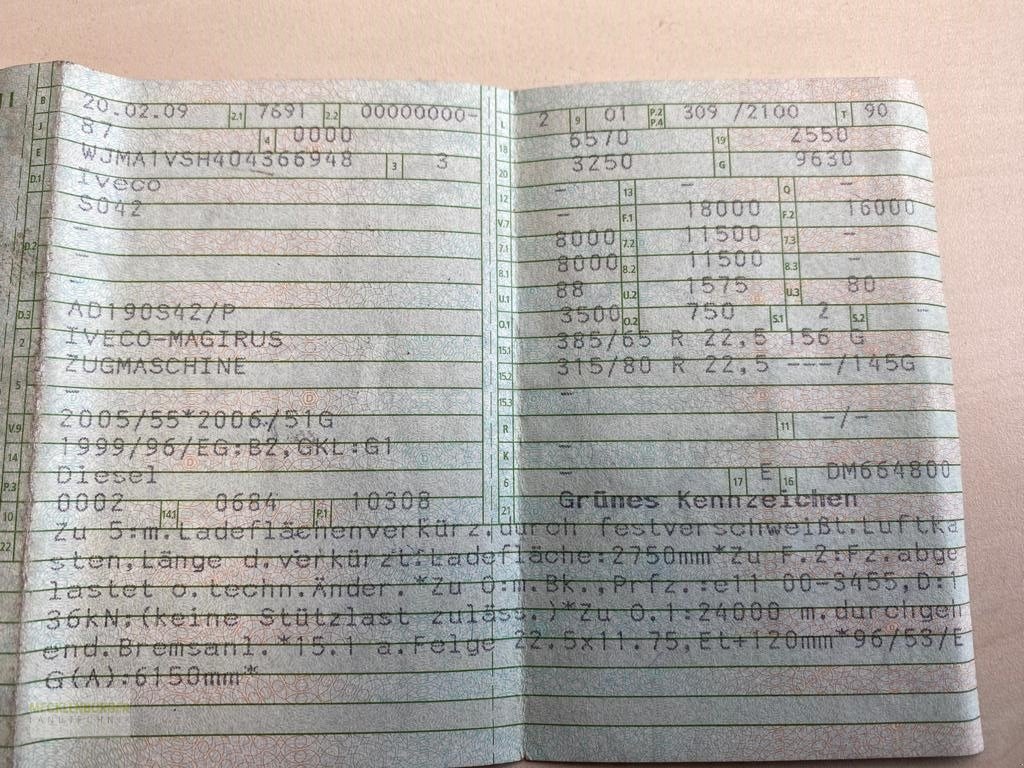 B 20.02.09 2.1 7691 2.2 00000000- L 2 9 01 P.2 P.4 309 /2100 T 90
J 87 4 0000 18 6570 19 2550
E WJMA1VSH404366948 3 3 20 3250 G 9630
D.1 Iveco 12 - 13 - Q -
S042 V.7 - F.1 18000 F.2 16000
D.2 - 7.1 8000 7.2 11500 7.3 -
- 8.1 8000 8.2 11500 8.3 -
- U.1 88 U.2 1575 U.3 80
D.3 AD190S42/P O.1 3500 O.2 750 S.1 2 S.2
2 IVECO-MAGIRUS 15.1 385/65 R 22,5 156 G
5 ZUGMASCHINE 15.2 315/80 R 22,5 ---/145G
- 15.3 -
V.9 2005/55*2006/51G R - 11 -/-
14 1999/96/EG;B2,GKL:G1 K -
P.3 Diesel 6 - 17 E 16 DM664800
10 0002 14.1 0684 P.1 10308 21 Grünes Kennzeichen
22 Zu 5:m.Ladeflächenverkürz.durch festverschweißt.Luftka
sten,Länge d.verkürzt.Ladefläche:2750mm*Zu F.2:Fz.abge
lastet o.techn.Änder.*Zu O:m.Bk.,Prfz.:e11 00-3455,D:1
36kN;(keine Stützlast zuläss.)*Zu O.1:24000 m.durchgeh
end.Bremsanl.*15.1 a.Felge 22.5x11.75,Et+120mm*96/53/E
G(A):6150mm*
MECKLENBURGER
LANDTECHNIK